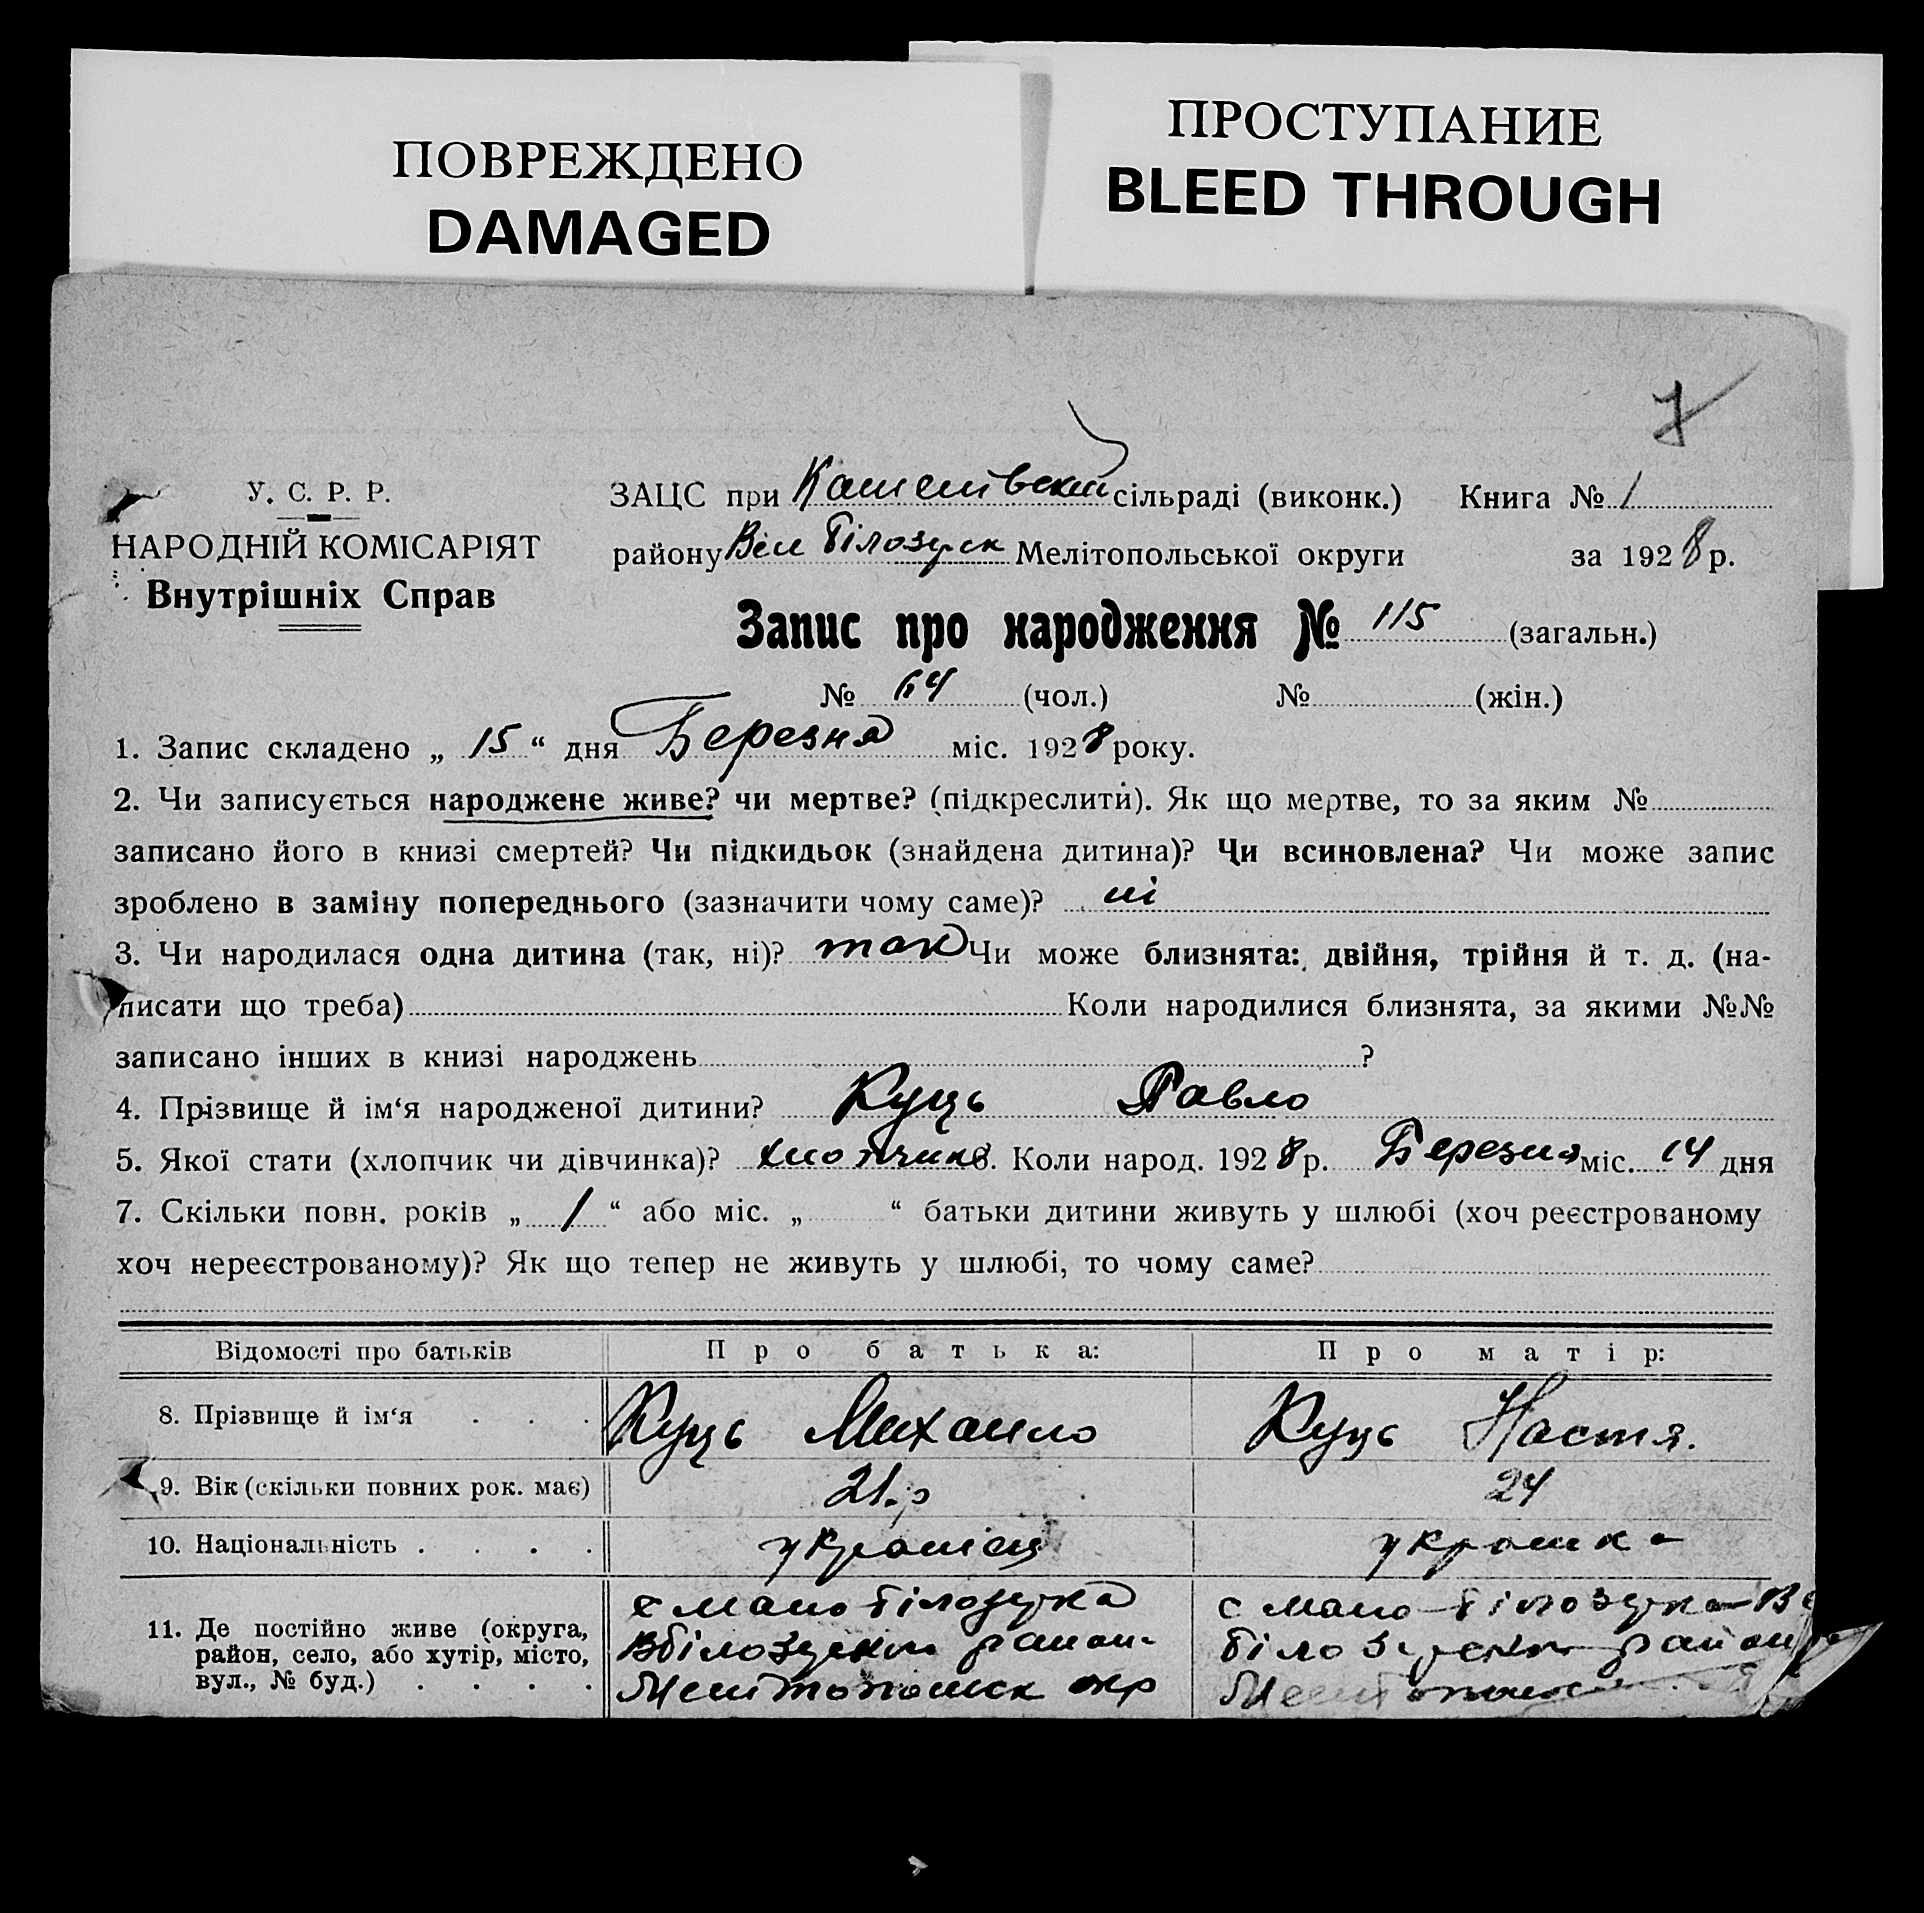 ПОВРЕЖДЕНО
DAMAGED
ПРОСТУПАНИЕ
BLEED THROUGH
7
У. С. Р. Р.
НАРОДНІЙ КОМІСАРІЯТ
Внутрішніх Справ
ЗАЦС при сільраді (виконк.) Книга № 1
району Вел Білозерск Мелітопольської округи за 1928 р.
Запис про народження № 115 (загальн.)
№ 64 (чол.) № (жін.)
1. Запис складено „ 15 “ дня Березня міс. 1928 року.
2. Чи записується народжене живе? чи мертве? (підкреслити). Як що мертве, то за яким №
записано його в книзі смертей? Чи підкидьок (знайдена дитина)? Чи всиновлена? Чи може запис
зроблено в заміну попереднього (зазначити чому саме)? ні
3. Чи народилася одна дитина (так, ні)? так Чи може близнята: двійня, трійня й т. д. (на-
писати що треба) Коли народилися близнята, за якими №№
записано інших в книзі народжень ?
4. Прізвище й ім‘я народженої дитини? Куць Павло
5. Якої стати (хлопчик чи дівчинка)? хлопчик 6. Коли народ. 1928 р. Березня міс. 14 дня
7. Скільки повн. років „ 1 “ або міс. „ “ батьки дитини живуть у шлюбі (хоч реєстрованому
хоч нереєстрованому)? Як що тепер не живуть у шлюбі, то чому саме?
Відомості про батьків Про батька: Про матір:
8. Прізвище й ім‘я . . . Куць Михайло Куць Настя.
9. Вік (скільки повних рок. має) 21.р 24
10. Національність . . . . українець українка
11. Де постійно живе (округа,
район, село, або хутір, місто,
вул., № буд.) . . . .
с Мало Білозерка
ВБілозерськ район
Мелітопольск окр
с Мало-Білозерка В
Білозерськ район